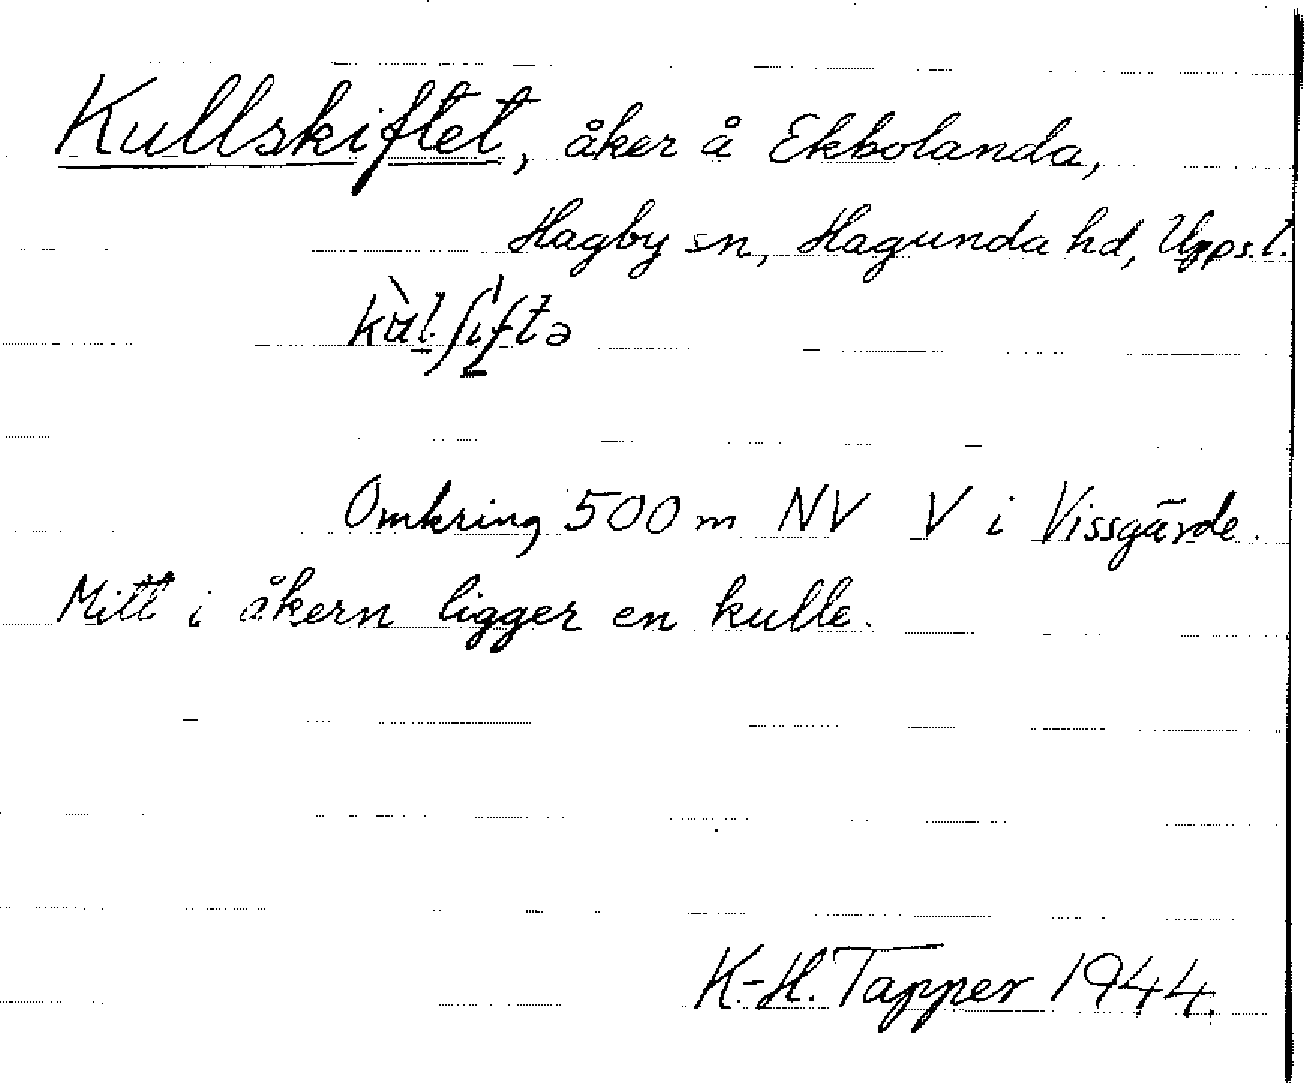 Kullskiftet, åker å Ekbolanda,
Hagby sn, Hagunda hd, Upps.l.
Omkring 500 m NV V i Vissgärde.
Mitt i åkern ligger en kulle.
K-H. Tapper 1944.